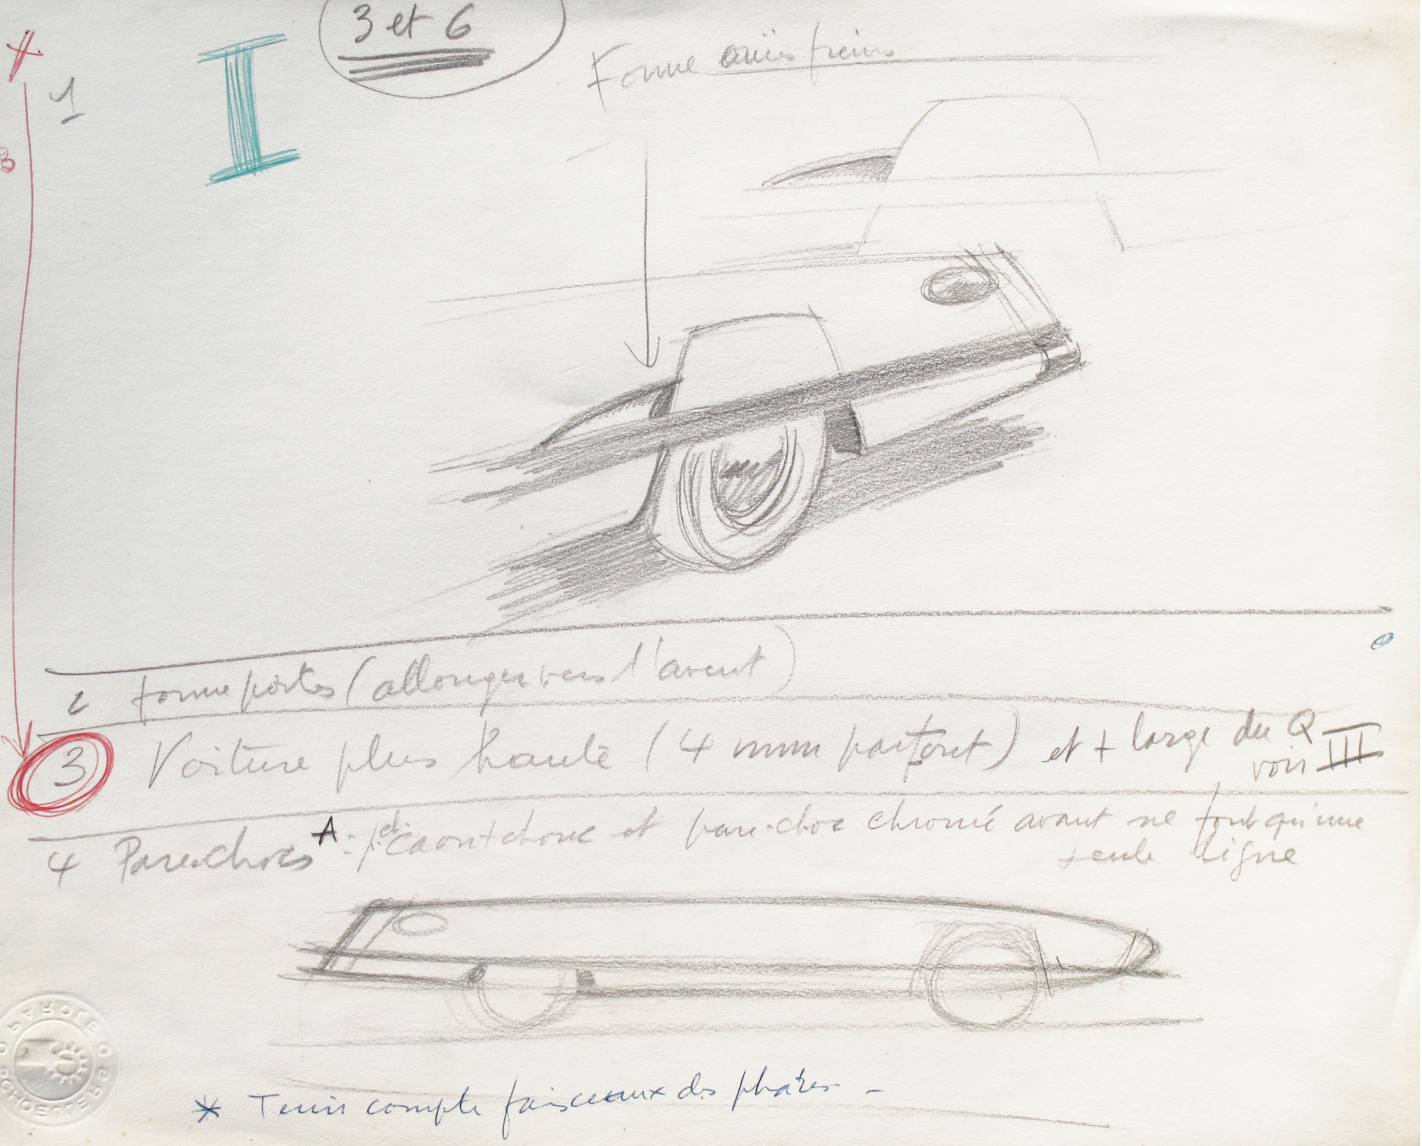 3 et 6
I
1
Forme ouïes freins
2 forme portes (allonger vers l'avant)
3 Voiture plus haute (4 mm partout) et + large du Q
voir III
4 Parechocs A et caoutchouc et pare-choc chromé avant ne font qu'une
seule ligne
* Tenir compte faisceaux des phares -